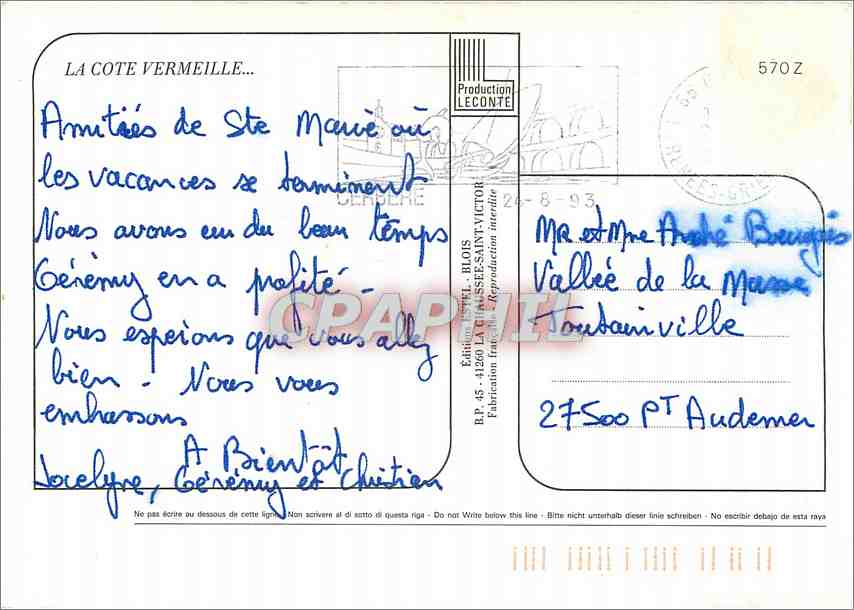 LA COTE VERMEILLE...
Production
LECONTE
570Z
Amitiés de Ste Marie où
les vacances se terminent
Nous avons eu du beau temps
Gérémy en a profité -
Nous esperons que vous allez
bien - Nous vous
embrassons
A Bientôt
Jocelyne, Gérémy et Christian
CERBERE
24-8-93
66
Éditions ESTEL - BLOIS
B.P. 45 - 41260 LA CHAUSSÉE-SAINT-VICTOR
Fabrication française - Reproduction interdite
MR et Mme André
Vallée de la
Toutainville
27500 PT Audemer
CPAPHIL
Ne pas écrire au dessous de cette ligne - Non scrivere al di sotto di questa riga - Do not Write below this line - Bitte nicht unterhalb dieser linie schreiben - No escribir debajo de esta raya